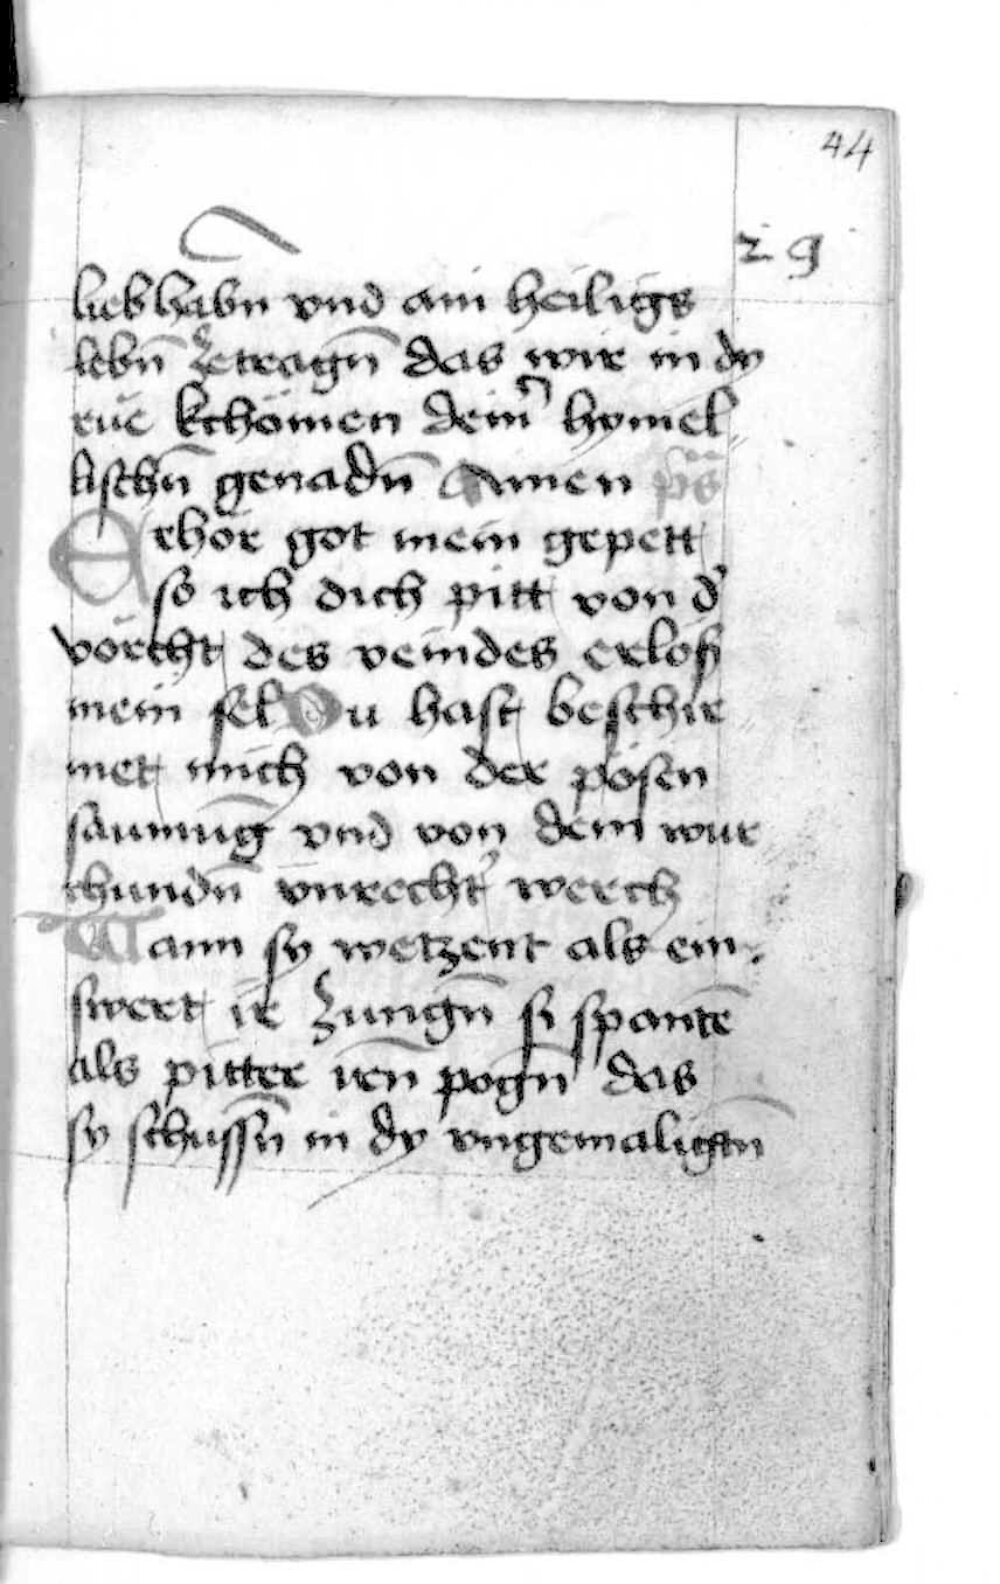 44
29
liebhabn vnd ain heiligs
lebn̄ zetragn̄ das wir in dy
rue kchömen dein̄ hymel
lischn̄ genadn̄ Amen ps̄
Erhör got mein gepett
so ich dich pitt von d'
vörcht des veindes erlös
mein sel Du hast beschir
met mich von der pösen
samnūg vnd von dem wur
chundn̄ vnrecht' werch
Wann sy wetzent als ein
swert ir zungn̄ si spantē
als pitter irn̄ pogn̄ das
sy schussn̄ in dy vngemaligtn̄